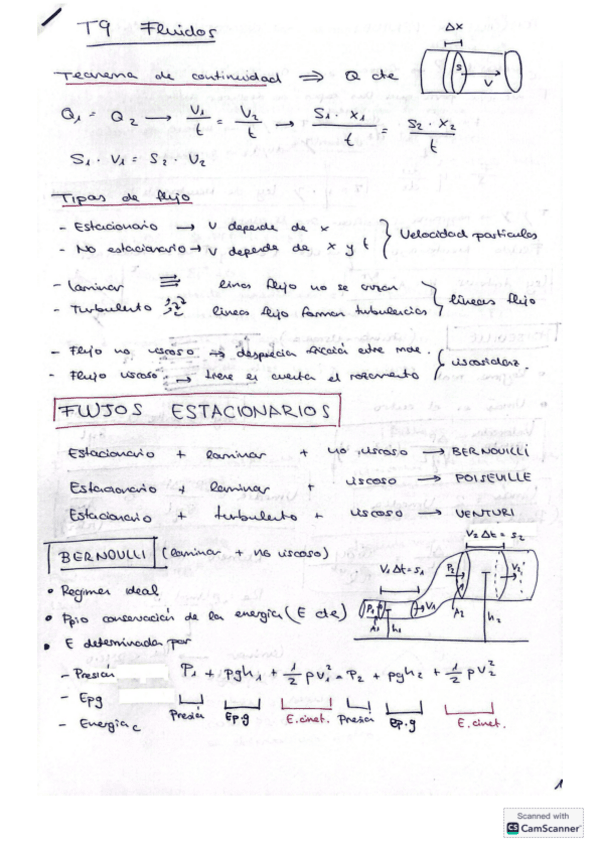 T9 Fluidos
Δx
S
V
Teorema de continuidad ⇒ Q cte
Q₁ = Q₂ → V₁/t = V₂/t → S₁ · x₁/t = S₂ · x₂/t
S₁ · V₁ = S₂ · V₂
Tipos de flujo
- Estacionario → v depende de x
- No estacionario → v depende de x y t
} Velocidad particulas
- Laminar lineas flujo no se cruzan
- Turbulento lineas flujo forman turbulencias
} líneas flujo
- Flujo no viscoso → desprecia fricción entre moe.
- Flujo viscoso → tiene en cuenta el rozamiento
} viscosidad
FLUJOS ESTACIONARIOS
Estacionario + laminar + no viscoso → BERNOUILLI
Estacionario + laminar + viscoso → POISEVILLE
Estacionario + turbulento + viscoso → VENTURI
BERNOULLI (laminar + no viscoso)
V₂ Δt = S₂
V₁ Δt = S₁
P₂
V₂
P₁
V₁
A₁
h₁
A₂
h₂
• Regimen ideal
• Ppio conservación de la energía (E cte)
• E determinada por
- Presión
P₁ + ρgh₁ + 1/2 ρv₁² = P₂ + ρgh₂ + 1/2 ρv₂²
- Epg
Presión Ep.g E.cinet. Presión Ep.g E.cinet.
- Energía c
1
Scanned with
CS CamScanner